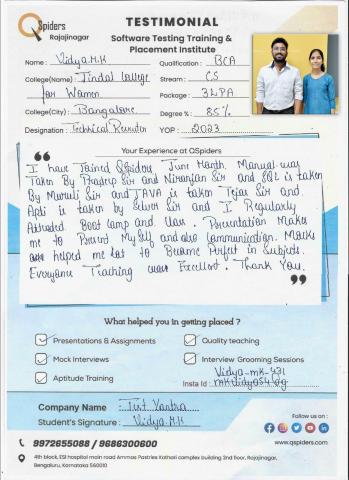 QSpiders
Rajajinagar
TESTIMONIAL
Software Testing Training &
Placement Institute
Name : Vidya.M.K
Qualification : BCA
College(Name) : Jindal College
for Women
Stream : CS
Package : 3LPA
College(City) : Bangalore
Degree % : 85%
Designation : Technical Recruiter
YOP : 2023
Your Experience at QSpiders
I have Joined Qspiders June Month. Manual was
Taken By Pradeep Sir and Niranjan Sir and SQL is taken
By Murali Sir and JAVA is taken Tejas Sir and
Apti is taken by Sir and I Regularly
Attended Boot Camp and Presentation Makes
me to Present My Self and also Communication. Mocks
helped me lot to Become Perfect in Subjects.
Everyone Teaching was Excellent. Thank You.
What helped you in getting placed ?
Presentations & Assignments
Quality teaching
Mock Interviews
Interview Grooming Sessions
Aptitude Training
Vidya-mk-431
Insta Id :
Company Name : Tint Yantra
Student's Signature : Vidya.M.K
Follow us on :
9972655088 / 9686300600
www.qspiders.com
4th block, ESI hospital main road Ammas Pastries Kathori complex building 2nd floor, Rajajinagar,
Bengaluru, Karnataka 560010